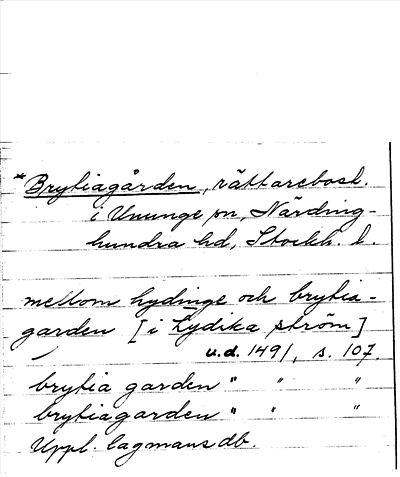 *Brytiagården, rättarebost.
i Ununge sn, Närding-
hundra hd, Stockh. l.
mellom hydinge och brytia-
garden [i Lydika ström]
u.d. 1491, s. 107.
brytia garden " " "
brytiagarden " " "
Uppl. lagmansdb.